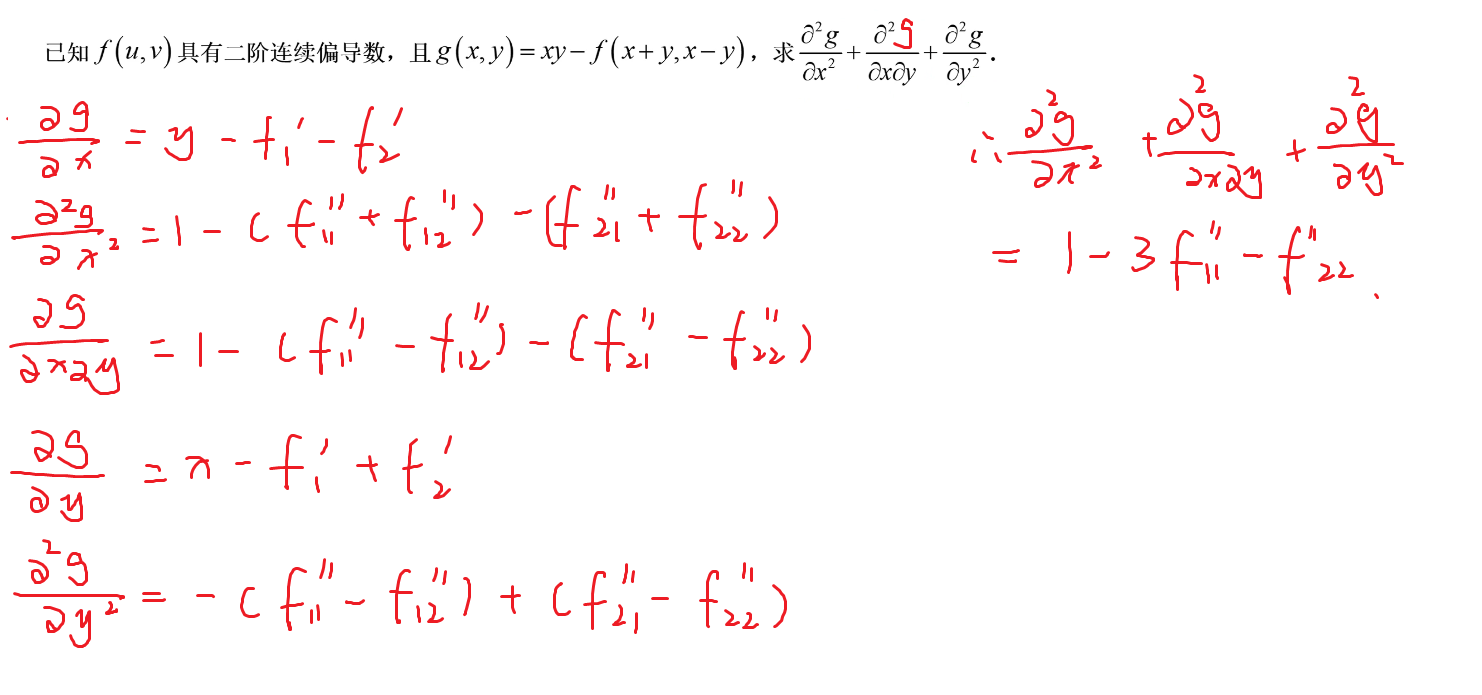 已知 f(u,v) 具有二阶连续偏导数，且 g(x,y)=xy−f(x+y,x−y)，求 ∂²g/∂x² + ∂²g/∂x∂y + ∂²g/∂y².
∂g/∂x = y − f₁′ − f₂′
∂²g/∂x² = 1 − (f₁₁″ + f₁₂″) − (f₂₁″ + f₂₂″)
∂g/∂x∂y = 1 − (f₁₁″ − f₁₂″) − (f₂₁″ − f₂₂″)
∂g/∂y = x − f₁′ + f₂′
∂²g/∂y² = − (f₁₁″ − f₁₂″) + (f₂₁″ − f₂₂″)
∴ ∂²g/∂x² + ∂²g/∂x∂y + ∂²g/∂y²
= 1 − 3f₁₁″ − f₂₂″.